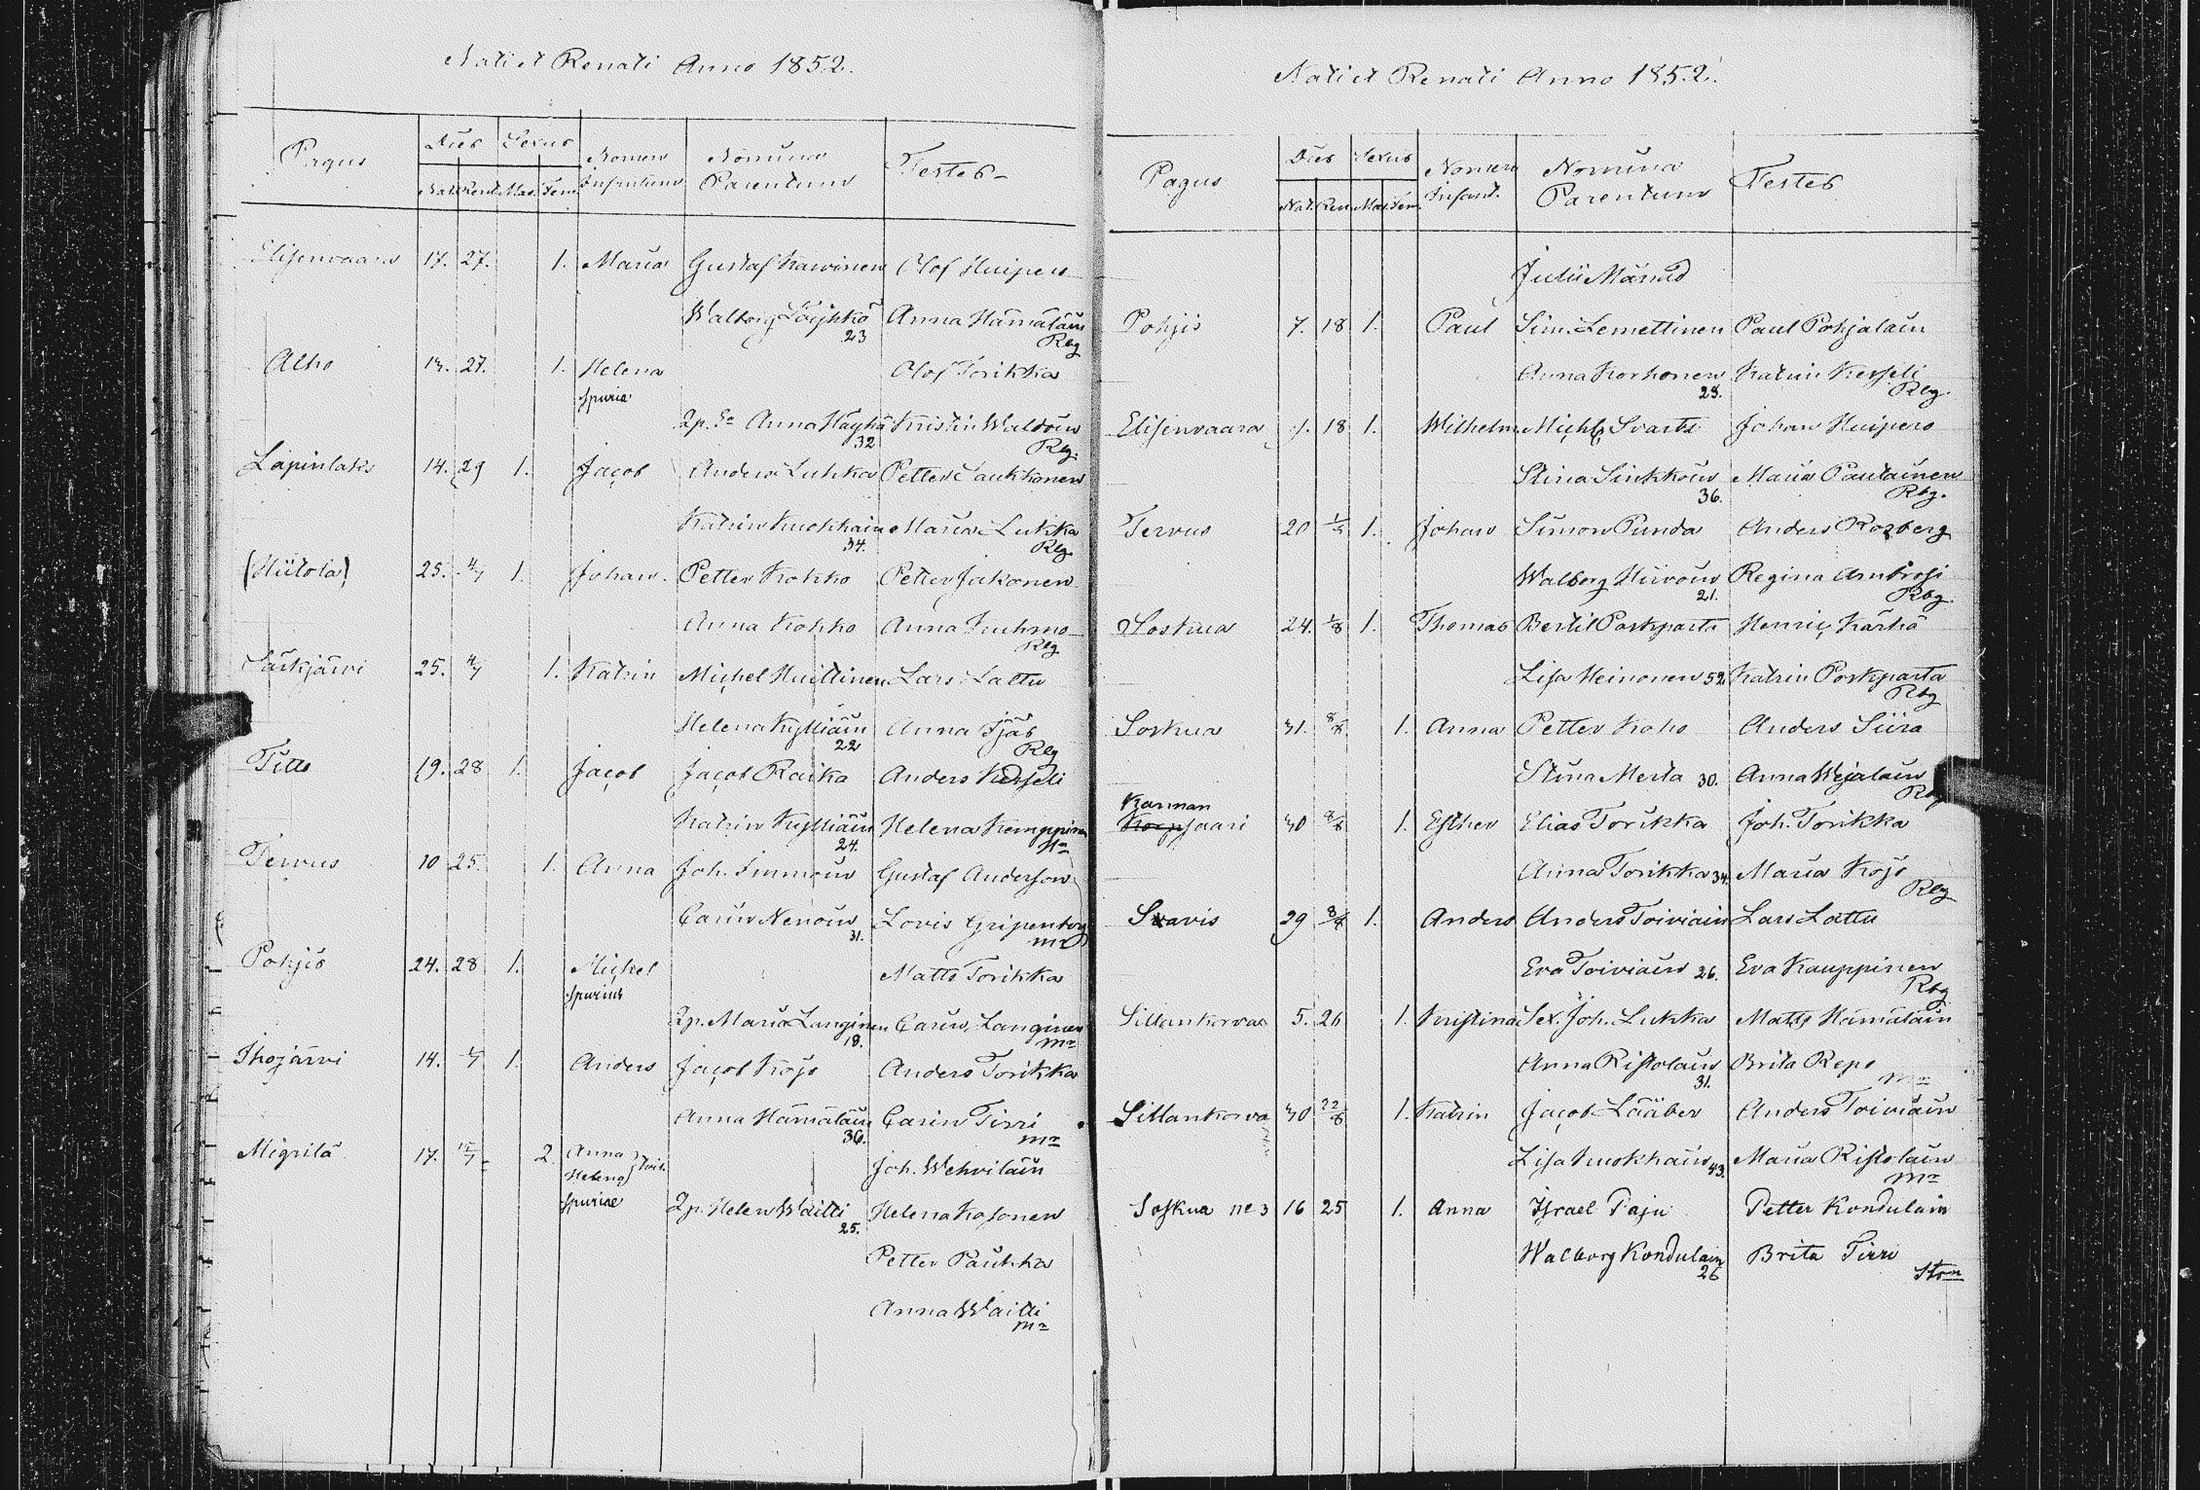 Nati et Renati Anno 1852.
Pagus Dies Sexus Nomen Infantum Nomina Parentum Testes
Nat. Rent. Mas. Fem.
Elisenvaara 17. 27. 1. Maria Gustaf Karvinen Olof Kuipers
Walborg Löyhkö 23 Anna Hämäläin Rbg
Alho 13. 27. 1. Helena Olof Torikka
spuria
Qp. Ea Anna Häyhä 32 Kristin Waldoin Rbg.
Lapinlaks 14. 29 1. Jacob Anders Lukka Petter Laukkonen
Katrin Kuokkain 34. Maria Lukka Rbg
(Hiitola) 25. 4/7 1. Johan. Petter Kokko Petter Jakonen
Anna Kokko Anna Kuhmo Rbg
Särkjärvi 25. 4/7 1. Katrin Michel Huittinen Lars Lattu
Helena Kylliäin 22 Anna Tjäs Rbg
Titto 19. 28 1. Jacob Jacob Raika Anders Kesseli
Katrin Kylliäin 24. Helena Kemppinen
Tervus 10 25. 1. Anna Joh. Immoin Gustaf Anderson
Carin Nenoin 31. Lovis Gripenberg mr
Pohjis 24. 28 1. Michel Matts Torikka
spurius
Qp. Maria Langinen 18. Carin Langinen mr
Ihojärvi 14. 1/7 1. Anders Jacob Kojo Anders Torikka
Anna Hämäläin 36. Carin Tirri mr
Migrilä 17. 2 Anna Joh. Wehviläin
Helena
spuriae Qp. Helen Waitti 25. Helena Kosonen
Petter Paukka
Anna Waitti mr
Nati et Renati Anno 1852.
Pagus Dies Sexus Nomen Infant. Nomina Parentum Testes
Nat. Ren. Mas. Fem.
Julii Månad
Pohjis 7. 18 1. Paul Sim. Lemettinen Paul Pohjalain
Anna Korhonen 28. Katrin Kesseli Rbg.
Elisenvaara 18 1. Wilhelm Michl Svarts Johan Kuipers
Stina Sinkkoin 36. Maria Pautainen Rbg.
Tervus 20 1. Johan Simon Punda Anders Rosberg
Walborg Hiivoin 21. Regina Ambrosi Rbg
Soskua 24. 1/8 1. Thomas Bertil Poskparta Henric Kärhä
Lisa Heinonen 52 Katrin Poskparta Rbg
Soskua 31. 8/8 1. Anna Petter Koho Anders Siira
Stina Merta 30. Anna Wejalain Rbg
Karman
saari 30 8/8 1. Esther Elias Torikka Joh. Torikka
Anna Torikka 34. Maria Kojo Rbg
Svavis 29 8/8 1. Anders Anders Toiviain Lars Lattu
Eva Toiviain 26. Eva Kauppinen Rbg
Sillankorva 5. 26 1. Kristina Sex. Joh. Lukka Matts Hämäläin
Anna Ristolain 31. Brita Repo mr
Sillankorva 30 22/8 1. Katrin Jacob Lääber Anders Toiviain
Lisa Kuokkain 43. Maria Ristolain mr
Soskua no 3 16 25 1. Anna Israel Paju Petter Kondulain
Walborg Kondulain 26 Brita Tirri